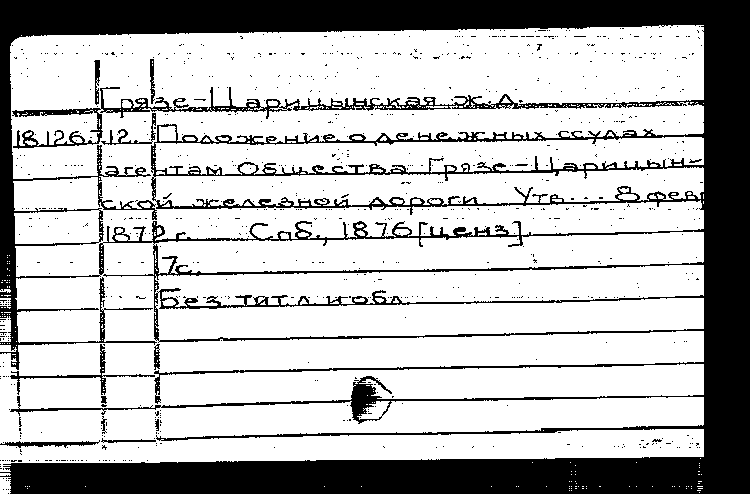 Грязе-Царицынская ж.д.
18.126.7.12. Положение о денежных ссудах
агентам Общества Грязе-Царицын-
ской железной дороги. Утв... 8 февр
187 г. Спб., 1876 [ценз].
7с.
Без тит.л. и обл.